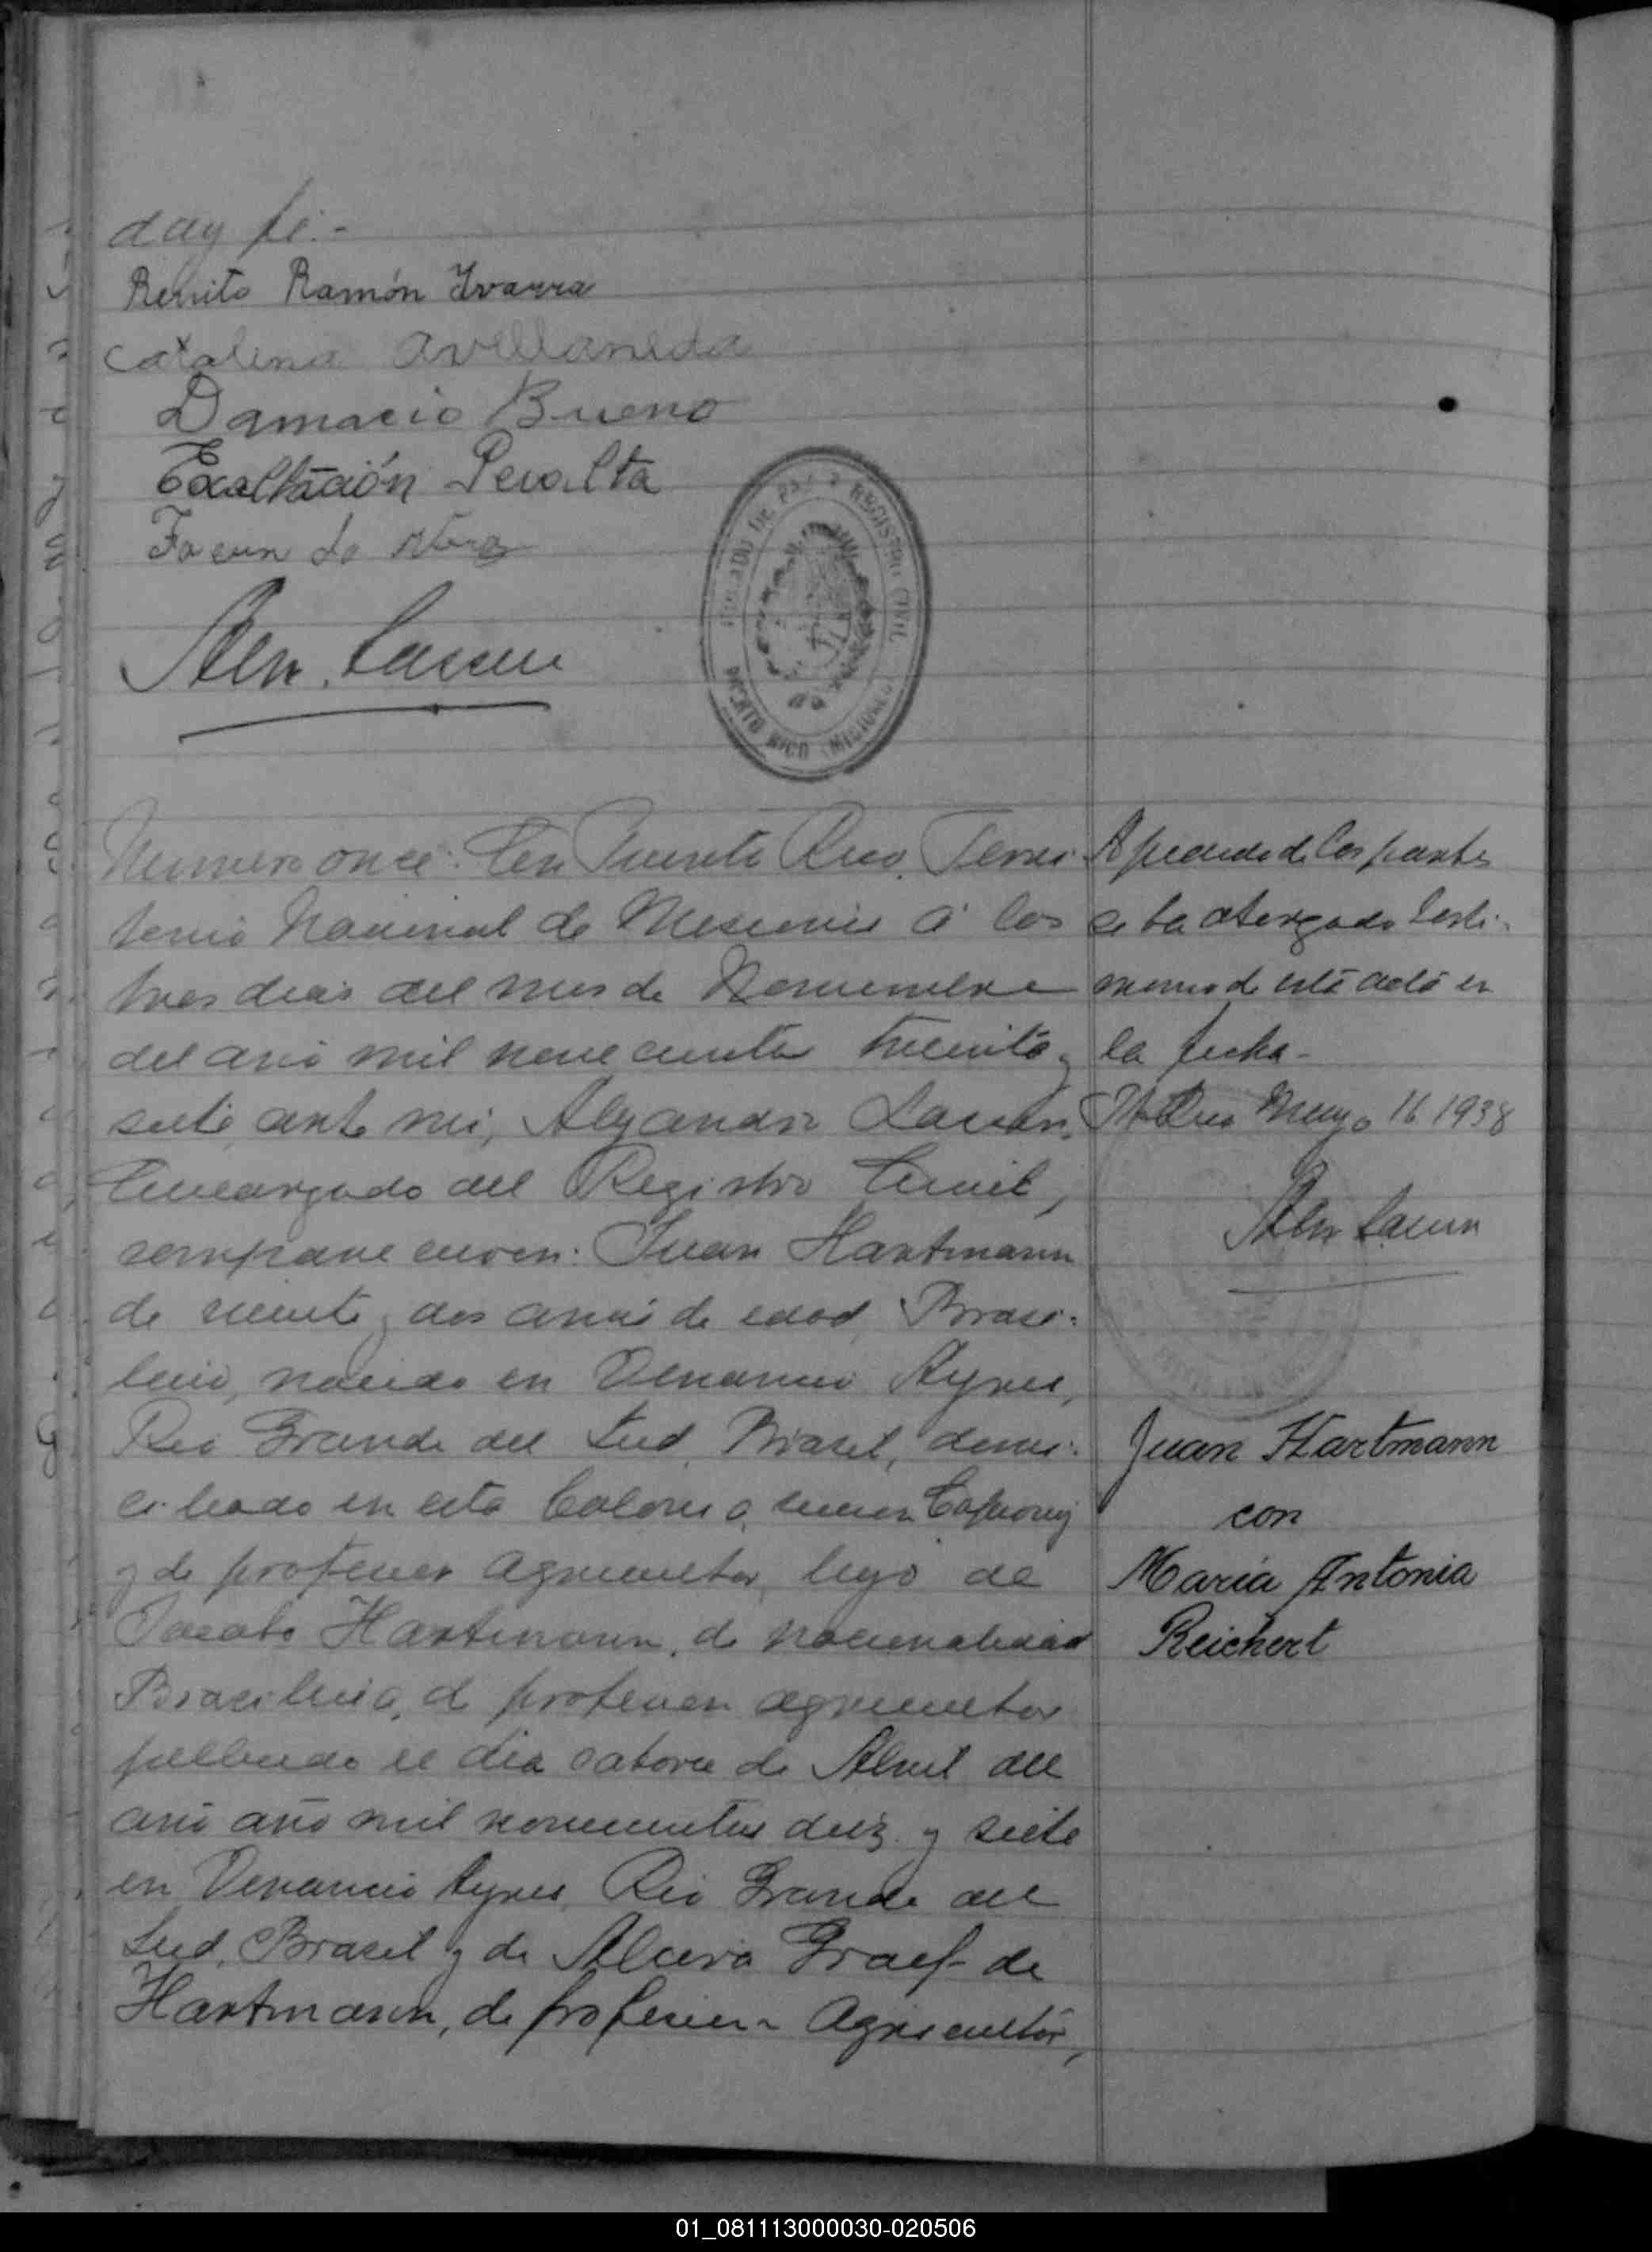 doy fé.-
Benito Ramón Ivarra
Catalina Avellaneda
Damacio Bueno
Exaltación Peralta
JUZGADO DE PAZ Y REGISTRO CIVIL
PUERTO RICO (MISIONES)
Numero once: En Puerto Rico, Terri-
torio Nacional de Misiones á los
tres dias del mes de Noviembre
del año mil novecientos treinta y
siete ante mi, Alejandro
Encargado del Registro Civil,
comparecieron: Juan Hartmann
de veinte y dos años de edad, Brasi-
lero, nacido en Venancio Ayres,
Rio Grande del Sud, Brasil, domi-
ciliado en esta Colonia,
y de profesion agricultor, hijo de
Jacobo Hartmann, de nacionalidad
Brasilera, de profesion agricultor
fallecido el dia catorce de Abril del
año año mil novecientos diez y siete
en Venancio Ayres, Rio Grande del
Sud, Brasil y de Graef de
Hartmann, de profesion Agricultor,
A pedido de las partes
se ha otorgado testi-
monio de esta acta en
la fecha-
Pto Rico Mayo 16 1938
Juan Hartmann
con
Maria Antonia
Reichert
01_081113000030-020506